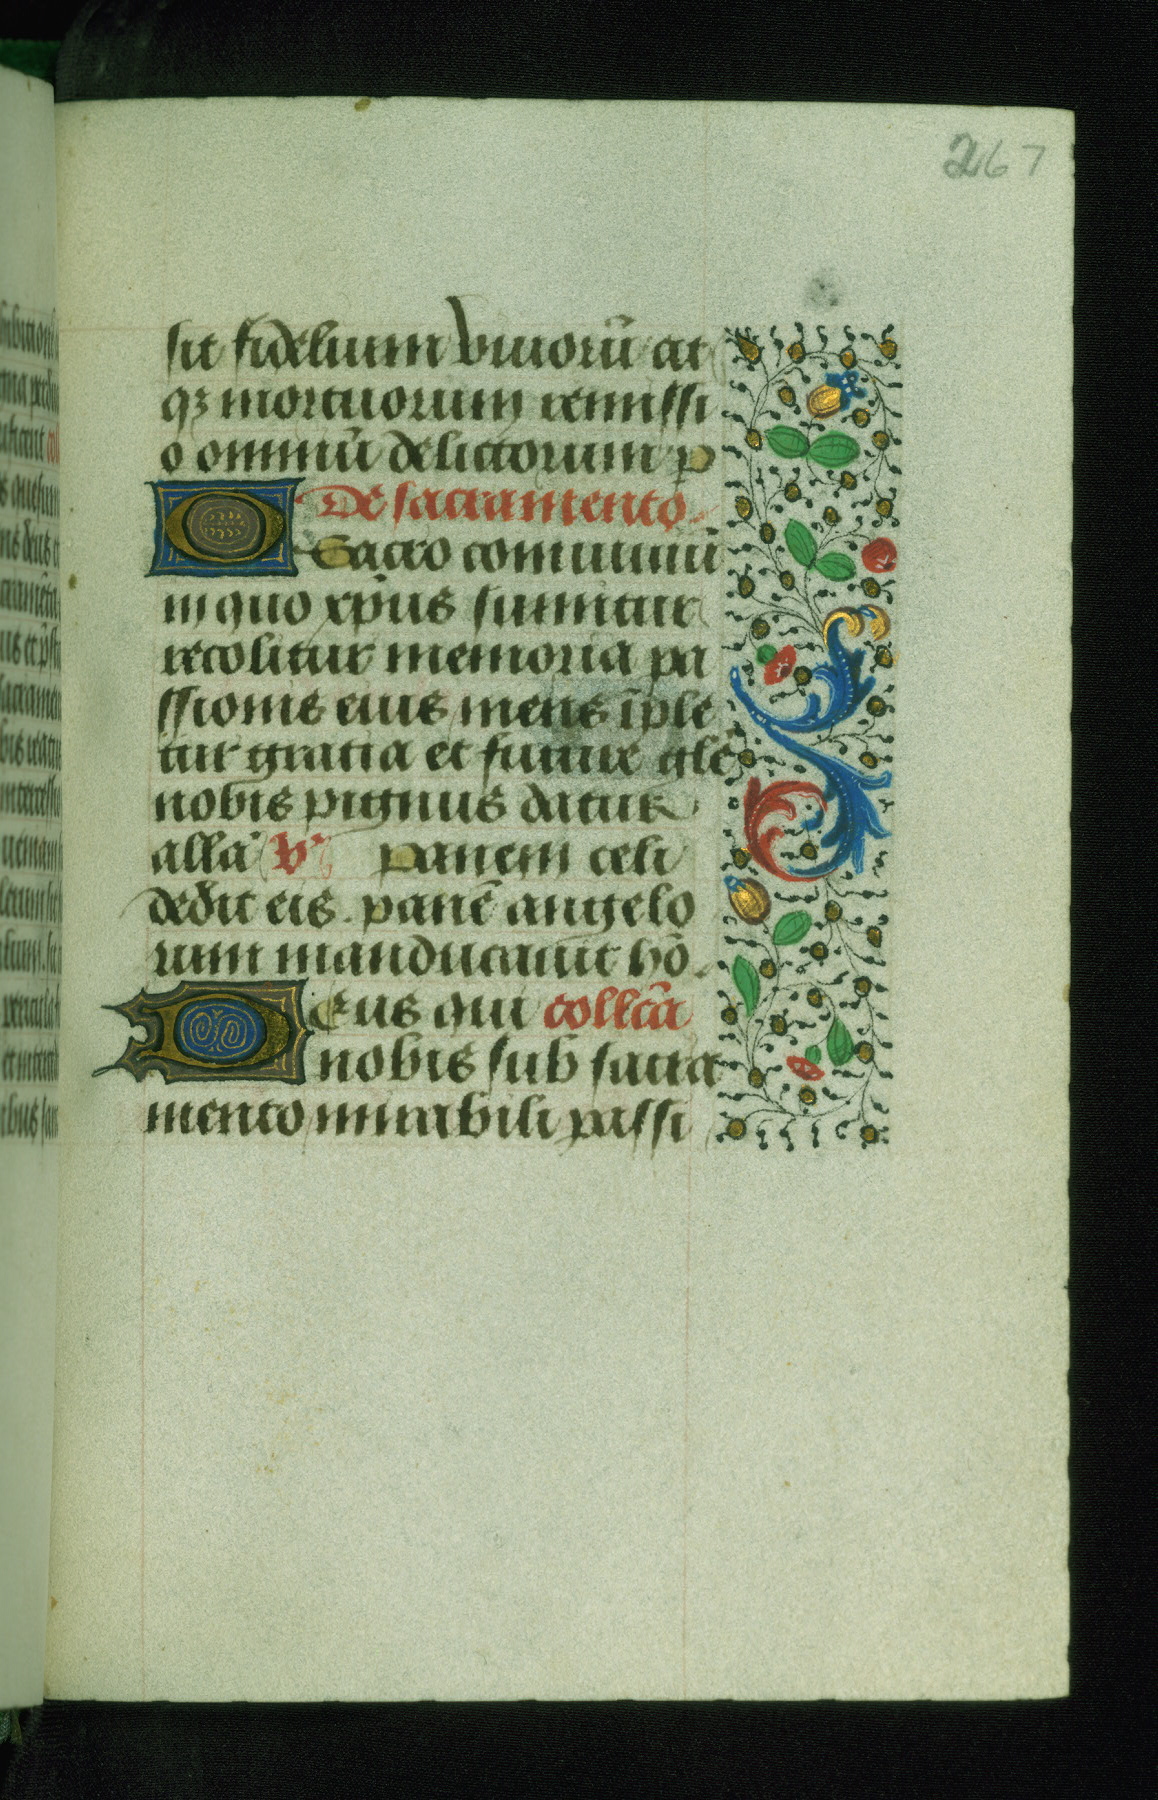 267
sit fidelium vivorū at
qꝫ mortuorum remissi
o omniū delictorum p
De sacramento.
O Sacro conuiuiū
in quo xp̄us sumitur
recolitur memoria pa
ssionis eius mens īple
tur gratia et future gl̄e
nobis pignus datur
alla V̕ Panem celi
dedit eis. panē angelo
rum manducauit hō.
Deus qui coll̄cā
nobis sub sacra
mento mirabili passi